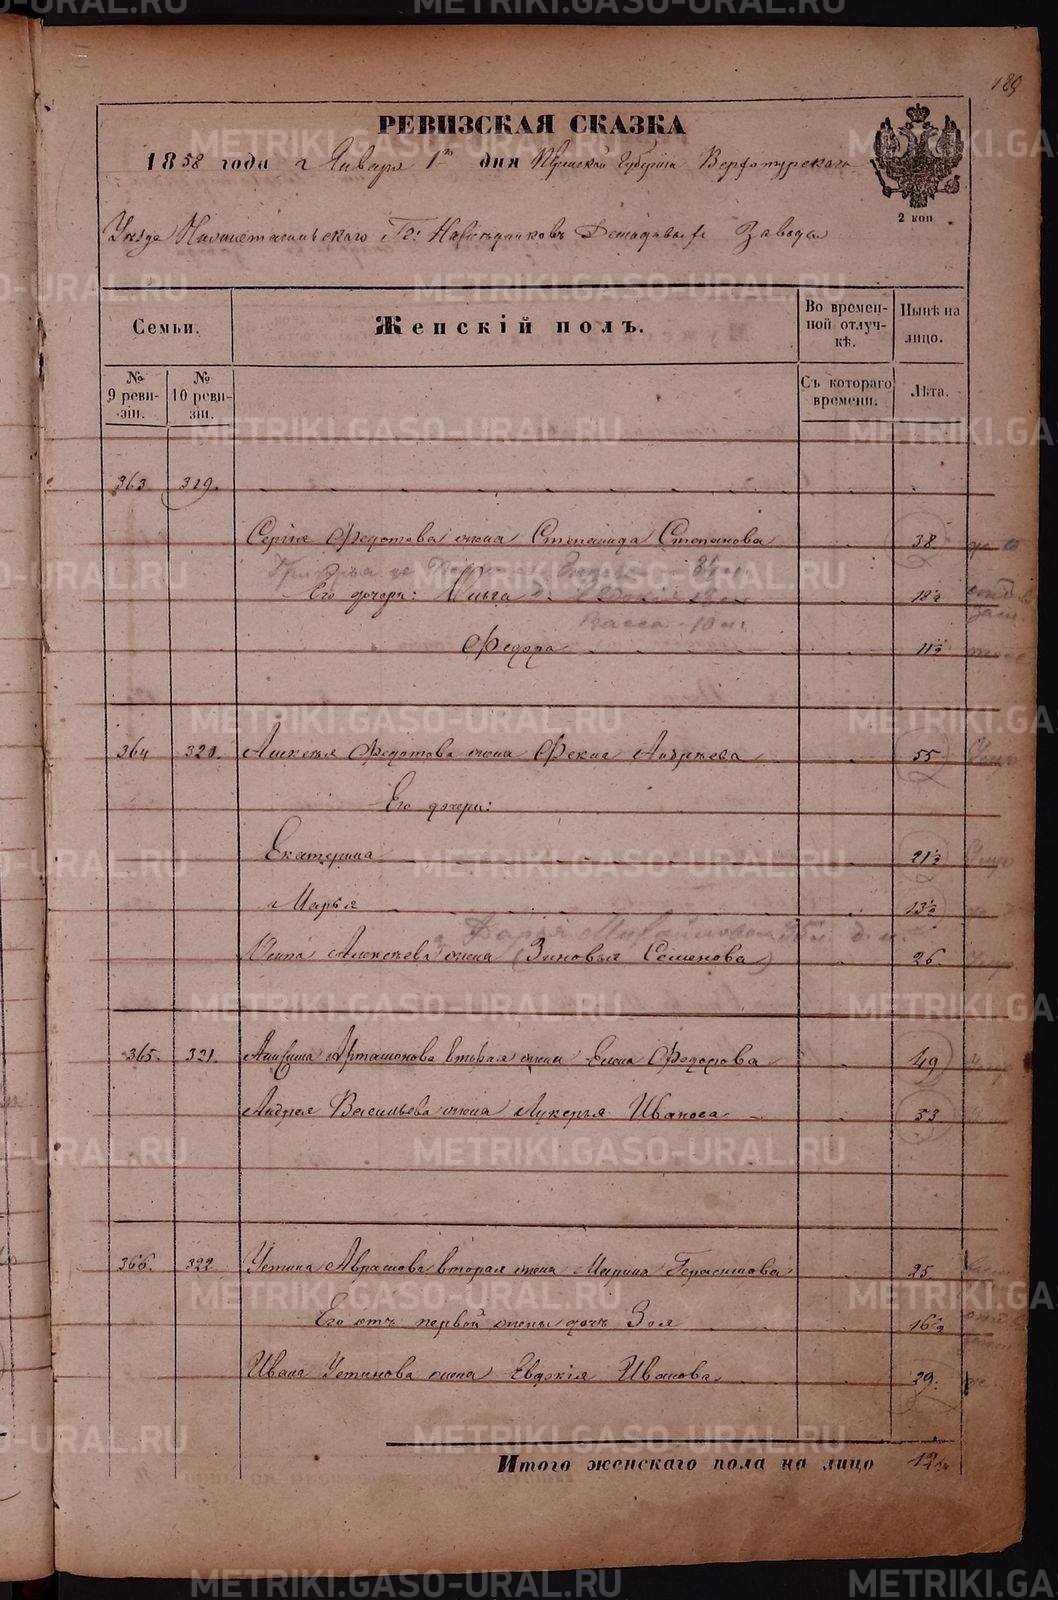 189
РЕВИЗСКАЯ СКАЗКА
1858 года Января 1го дня Пермской Губернiи Верхотурскаго
2 коп
Уѣзда Нижнетагильскаго Гг: Наслѣдниковъ Демидовыхъ Завода
Семьи.
Женскiй полъ.
Во времен-
ной отлуч-
кѣ.
Нынѣ на
лицо.
№
9 реви-
зiи.
№
10 реви-
зiи.
Съ котораго
времени.
Лѣта.
363 319.
Сергѣя Федотова жена Степанида Степанова 38
Его дочери: Ольга 18½
Васса 10
Федора 11½
364 320. Алексѣя Федотова жена Фекла Андреева 55
Его дочери:
Екатерина 21½
Марья 13½
Дарья Михайловна
Алексѣева жена (Зиновья Семенова) 26
365. 321. Анисима Артамонова вторая жена Елена Федорова 49
Андрея Васильева жена Лукерья Иванова 53
366. 322 Устина Абрамова вторая жена Марина Герасимова 25
Его отъ первой жены дочь Зоя 16½
Ивана Устинова жена Евдокiя Иванова 29.
Итого женскаго пола на лицо 12
METRIKI.GASO-URAL.RU